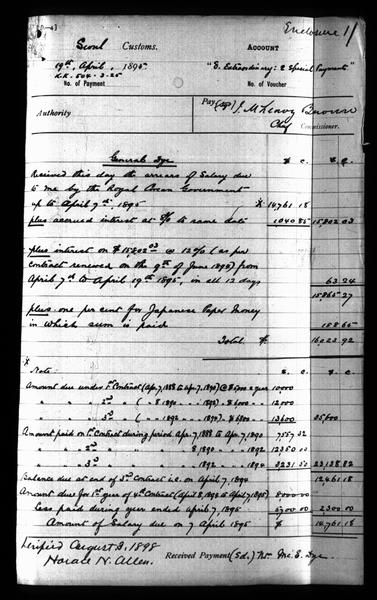 Enclosure 1/
Seoul Customs.
ACCOUNT
19th, April, 1895
"S. Extraordinary: 2 Special Payments"
No. of Payment
No. of Voucher
Authority
Pay J. McLeavy Brown
Chief Commissioner.
General Dye
$ c. $ c.
Received this day the arrears of Salary due
to me by the Royal Corean Government
up to April 7th, 1895 $ 14,761.18
plus accrued interest at to same date 1040.85 15,802.03
plus interest on $15,802.03 @ 12% (as per
contract renewed on the 9th of June 1895) from
April 7th to April 19th 1895, in all 12 days 63.24
15,865.27
plus one per cent for Japanese Paper Money
in which sum is paid 158.65
Total $ 16,023.92
Note
Amount due under 1st Contract (Apr. 7, 1888 to Apr. 7, 1890) @ $5,000 a year 10,000
" " " 2nd " ( " 8 1890 " " 1892) " $6,000 " 12,000
" " " 3rd " ( " " 1892 " " 1894) " $6,800 " 13,600 35,600
Amount paid on 1st Contract during period Apr. 7, 1888 to Apr. 7, 1890 7,557.32
" " " 2nd " " " 8 1890 " " 1892 12,350.00
" " " 3rd " " " " 1892 " " 1894 3,231.50 23,138.82
Balance due at end of 3rd Contract i.e. on April 7, 1894 12,461.18
Amount due for 1st year of 4th Contract (April 8, 1894 to April 7, 1895) 8,000.00
Less paid during year ended April 7, 1895 5,700.00 2,300.00
Amount of Salary due on 7 April 1895 $ 14,761.18
Verified August 3, 1898
Horace N. Allen.
Received Payment (Sd.) Wm. McE. Dye.